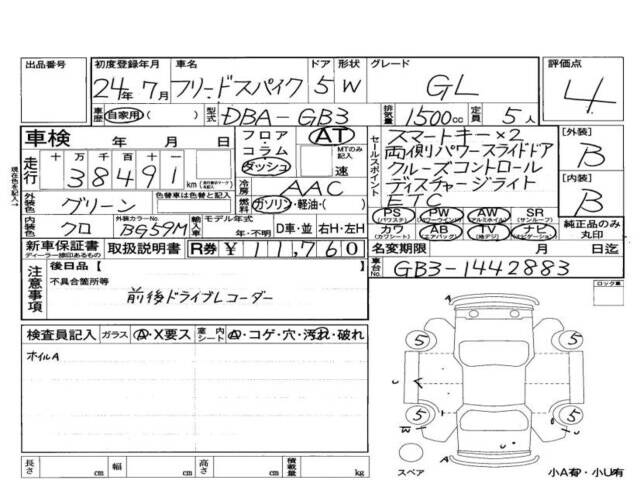 出品番号 初度登録年月 車名 ドア 形状 グレード 評価点
24年 7月 フリードスパイク 5 W GL 4
車歴 自家用 ( ) 型式 DBA-GB3 排気量 1500cc 定員 5人
車検 年 月 日 フロア コラム ダッシュ AT MTのみ記入 速
セールスポイント スマートキー×2
両側パワースライドドア
クルーズコントロール
ディスチャージライト
ETC
[外装] B
[内装] B
現在色を記入→
走行 十万 千百十一
38491 km
冷房 AAC
外装色 グリーン 色替車は色替と記入 燃料 ガソリン・軽油・( )
PS (パワステ) PW (パワーウインド) AW (アルミホイル) SR (サンルーフ)
カワ (カワシート) AB (エアバック) TV (地デジ) ナビ (ナビゲーション)
純正品のみ丸印
内装色 クロ 外装カラーNo. BG59M 輸入車 モデル年式 年・不明 D車・並 右H・左H
新車保証書 ディーラー捺印あるもの 取扱説明書 R券 ¥11,760 名変期限 月 日迄
車台No. GB3-1442883
注意事項 後日品 [ ]
不具合箇所等
前後ドライブレコーダー
ロック車
検査員記入 ガラス A・X要ス 室内シート A・コゲ・穴・汚れ・破れ
ホイルA
5 5
5 5
スペア 小A有・小U有
長さ cm 幅 cm 高さ cm 積載量 kg